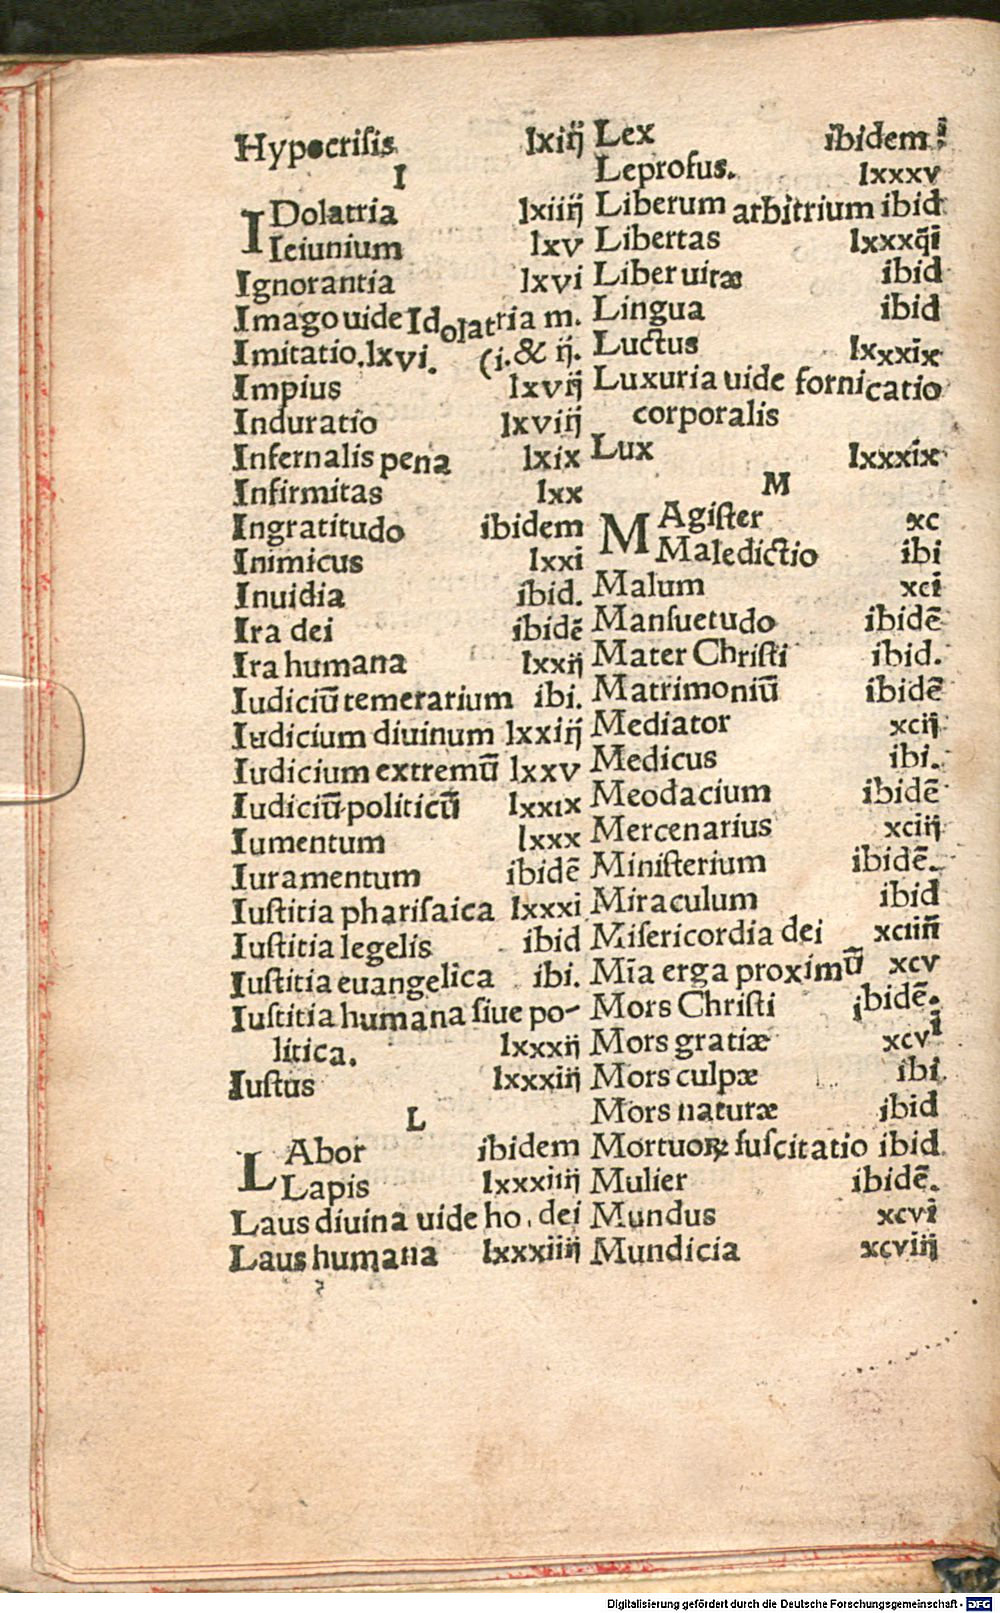 Hypocriſis lxiij
I
IDolatria lxiiij
Ieiunium lxv
Ignorantia lxvi
Imago uide Idolatria m.
Imitatio.lxvi. (i.& ij.
Impius lxvij
Induratio lxviij
Infernalis pena lxix
Infirmitas lxx
Ingratitudo ibidem
Inimicus lxxi
Inuidia ibid.
Ira dei ibidē
Ira humana lxxij
Iudiciū temerarium ibi.
Iudicium diuinum lxxiij
Iudicium extremū lxxv
Iudiciū politicū lxxix
Iumentum lxxx
Iuramentum ibidē
Iuſtitia phariſaica lxxxi
Iuſtitia legelis ibid
Iuſtitia euangelica ibi.
Iuſtitia humana ſiue po-
litica. lxxxij
Iuſtus lxxxiij
L
LAbor ibidem
Lapis lxxxiiij
Laus diuina uide ho. dei
Laus humana lxxxiiij
Lex ibidem
Leproſus. lxxxv
Liberum arbitrium ibid
Libertas
Liber uitæ ibid
Lingua ibid
Luctus lxxxix
Luxuria uide fornicatio
corporalis
Lux lxxxix
M
MAgiſter xc
Maledictio ibi
Malum xci
Manſuetudo ibidē
Mater Chriſti ibid.
Matrimoniū ibidē
Mediator xcij
Medicus ibi.
Meodacium ibidē
Mercenarius xciij
Miniſterium ibidē.
Miraculum ibid
Miſericordia dei xciiij
Mīa erga proximū xcv
Mors Chriſti ibidē.
Mors gratiæ xcvi
Mors culpæ ibi
Mors naturæ ibid
Mortuoꝝ ſuſcitatio ibid
Mulier ibidē.
Mundus xcvi
Mundicia xcviij
Digitalisierung gefördert durch die Deutsche Forschungsgemeinschaft - DFG